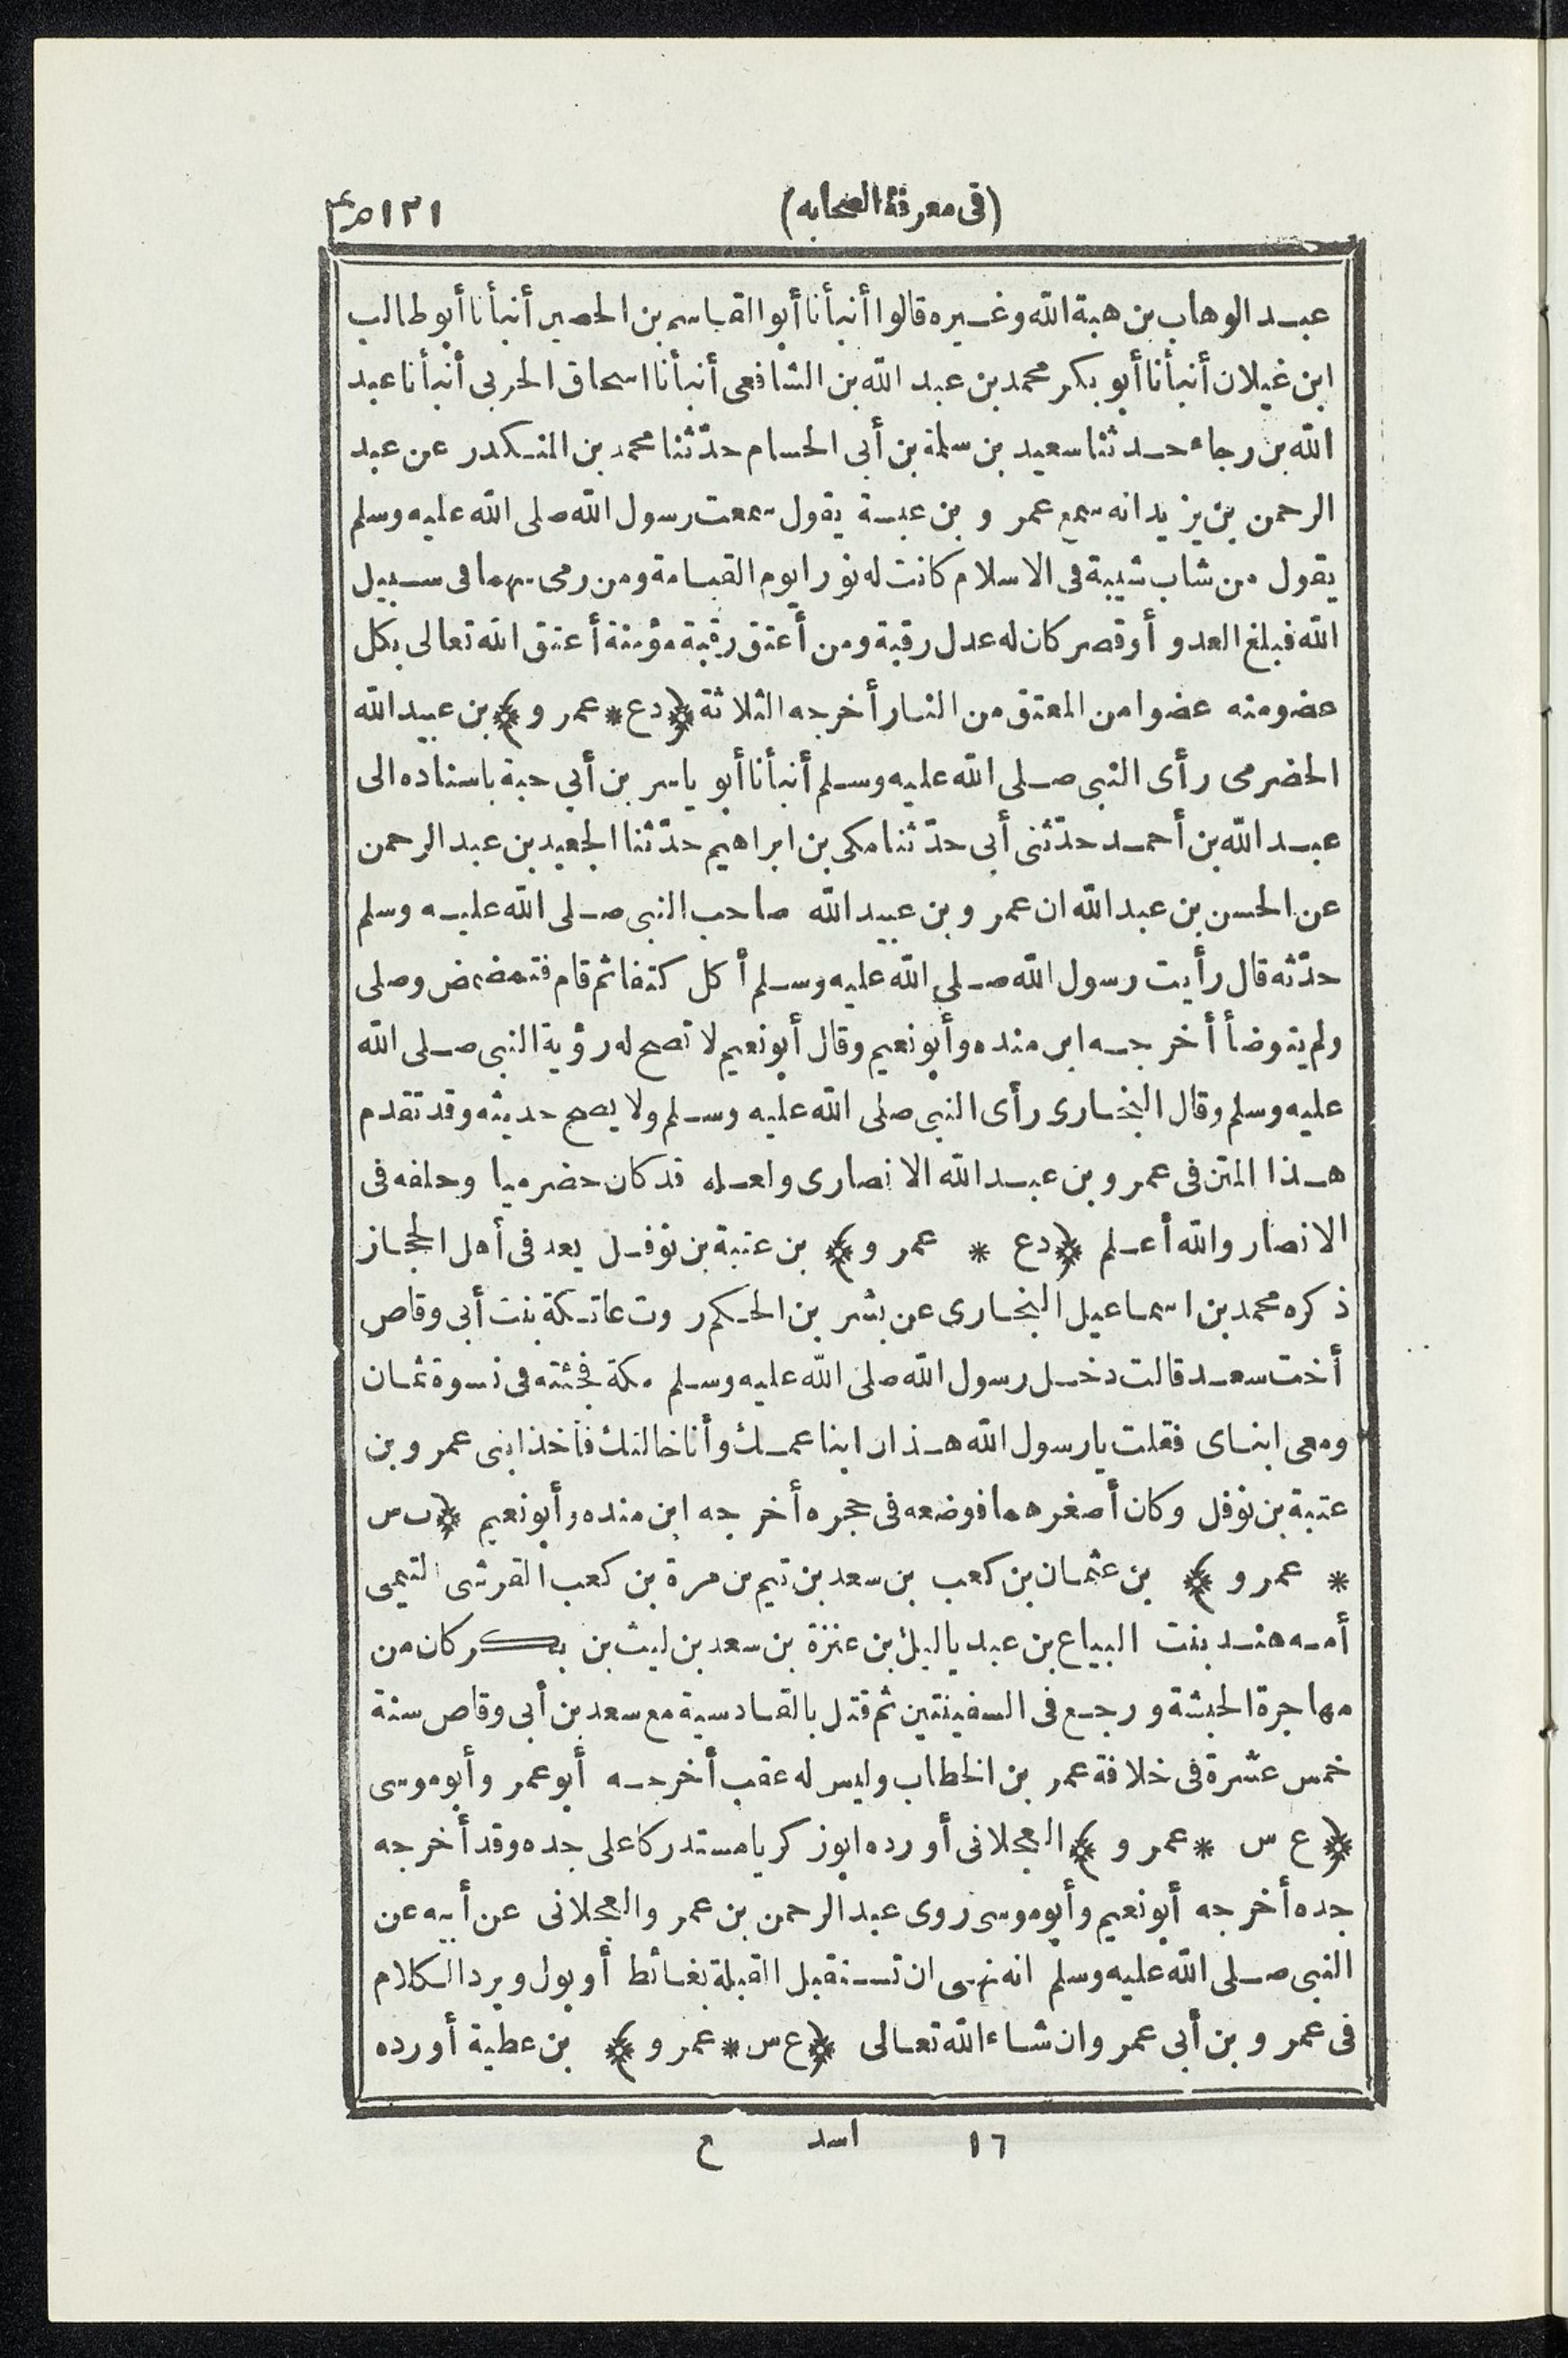 (فى معرفة الصحابه)
١٢١
عبد الوهاب بن هبة الله وغيره قالوا أنبأنا أبوالقاسم بن الحصين أنبأنا أبو طالب
ابن غيلان أنبأنا أبو بكر محمد بن عبد الله بن الشافعى أنبأنا اسحاق الحربى أنبأنا عبد
الله بن رجاء حدثنا سعيد بن سلمة بن أبى الحسام حدّثنا محمد بن المنكدر عن عبد
الرحمن بن يزيد انه سمع عمرو بن عبسة يقول سمعت رسول الله صلى الله عليه وسلم
يقول من شاب شيبة فى الاسلام كانت له نورا يوم القيامة ومن رمى سهما فى سبيل
الله فبلغ العدو أو قصر كان له عدل رقبة ومن أعتق رقبة مؤمنة أعتق الله تعالى بكل
عضو منه عضوا من المعتق من النار أخرجه الثلاثة ﴿دع * عمرو﴾ بن عبيد الله
الحضرمى رأى النبى صلى الله عليه وسلم أنبأنا أبو ياسر بن أبي حبة باسناده الى
عبد الله بن أحمد حدّثنى أبى حدّثنا مكى بن ابراهيم حدّثنا الجعيد بن عبد الرحمن
عن الحسن بن عبد الله ان عمرو بن عبيد الله صاحب النبى صلى الله عليه وسلم
حدّثه قال رأيت رسول الله صلى الله عليه وسلم أكل كتفا ثم قام فتمضمض وصلى
ولم يتوضأ أخرجه ابن منده وأبو نعيم وقال أبو نعيم لا تصح له رؤية النبى صلى الله
عليه وسلم وقال البخارى رأى النبى صلى الله عليه وسلم ولا يصح حديثه وقد تقدم
هذا المتن فى عمرو بن عبد الله الانصارى ولعله قد كان حضرميا وحلفه فى
الانصار والله أعلم ﴿دع * عمرو﴾ بن عتبة بن نوفل يعد فى أهل الحجاز
ذكره محمد بن اسماعيل البخارى عن بشر بن الحكم روت عاتكة بنت أبى وقاص
أخت سعد قالت دخل رسول الله صلى الله عليه وسلم مكة فجئته فى نسوة ثمان
ومعى ابناى فقلت يارسول الله هذان ابنا عمك وأنا خالتك فأخذ ابنى عمرو بن
عتبة بن نوفل وكان أصغرهما فوضعه فى حجره أخرجه ابن منده وأبو نعيم ﴿ب س
* عمرو﴾ بن عثمان بن كعب بن سعد بن تيم بن مرة بن كعب القرشى التيمى
أمه هند بنت البياع بن عبد ياليل بن عنزة بن سعد بن ليث بن بكر كان من
مهاجرة الحبشة ورجع فى السفينتين ثم قتل بالقادسية مع سعد بن أبى وقاص سنة
خمس عشرة فى خلافة عمر بن الخطاب وليس له عقب أخرجه أبو عمر وأبو موسى
﴿ع س * عمرو﴾ العجلانى أورده ابو زكريا مستدركا على جده وقد أخرجه
جده أخرجه أبو نعيم وأبو موسى روى عبد الرحمن بن عمرو العجلانى عن أبيه عن
النبى صلى الله عليه وسلم انه نهى ان تستقبل القبلة بغائط أو بول ويرد الكلام
فى عمرو بن أبى عمرو ان شاء الله تعالى ﴿ع س * عمرو﴾ بن عطية أورده
١٦ اسد ع